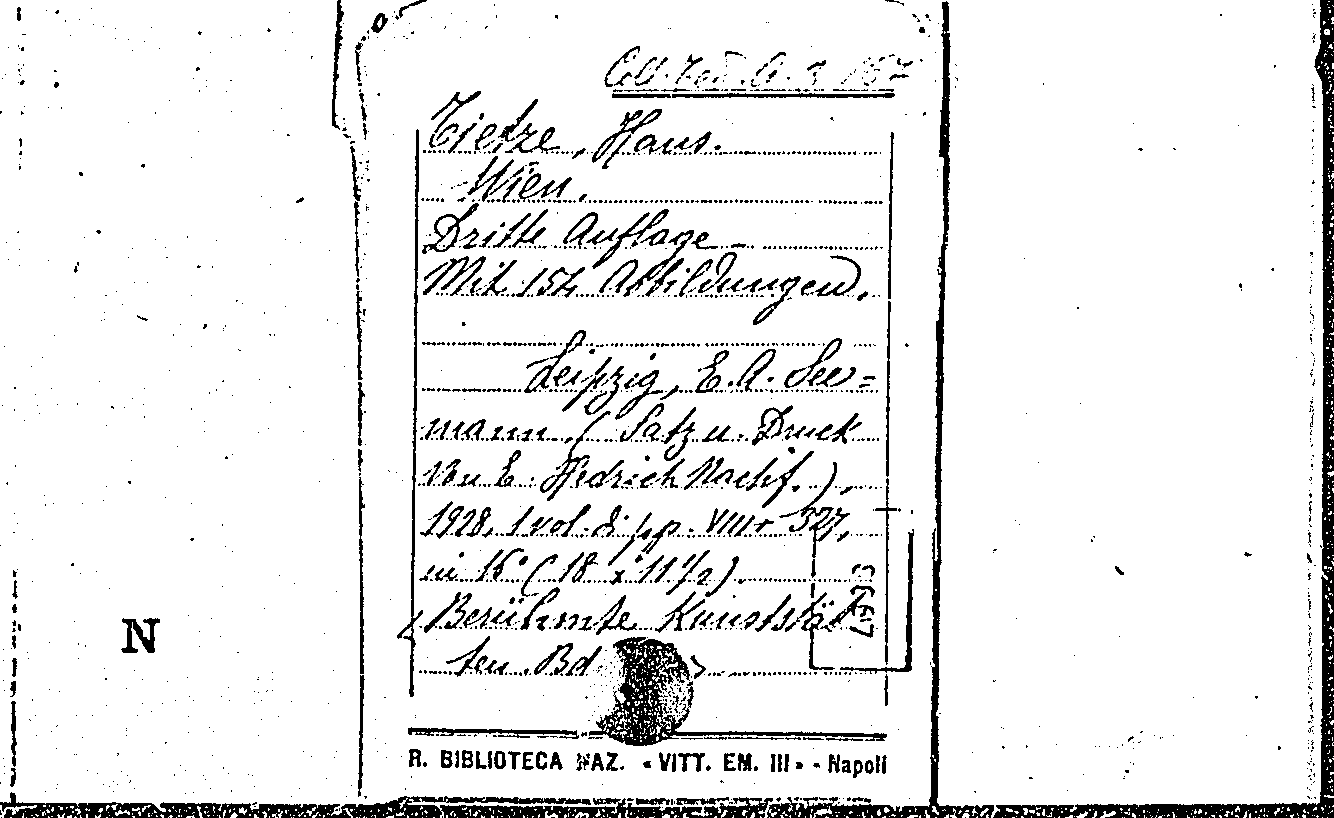 Coll. Ted. A. 3 157
Tietze, Hans.
Wien.
Dritte Auflage -
Mit 154 Abbildungen.
Leipzig, E. A. See=
mann, (Satz u. Druck
von E. Hedrich Nachf.),
1928, 1 vol. di pp. VIII + 327,
in 16° (18 x 11 1/2).
(Berühmte Kunststät
ten. Bd )
N
R. BIBLIOTECA NAZ. «VITT. EM. III» - Napoli